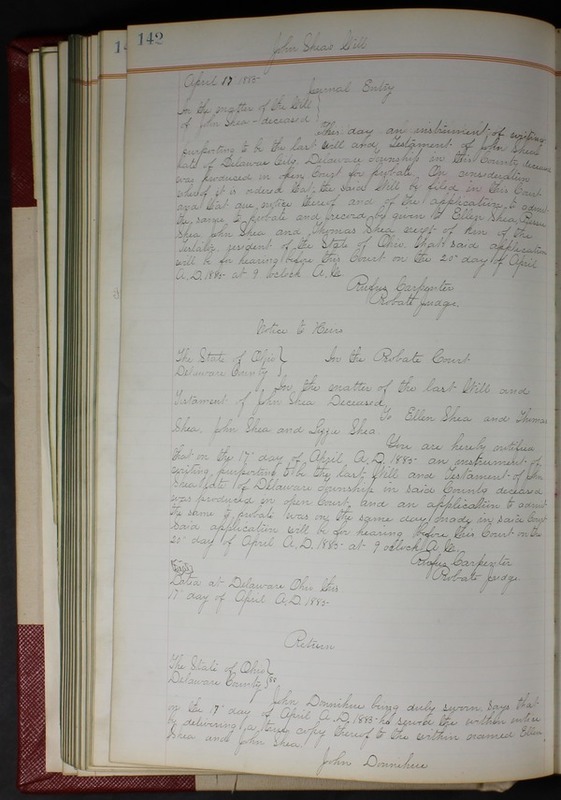 142
John Sheas Will
April 17 1885
Journal Entry
In the matter of the Will
of John Shea deceased
This day an instrument of writing
purporting to be the last Will and Testament of John Shea
late of Delaware City, Delaware Township in this County deceased
was produced in open Court for probate. On consideration
whereof it is ordered that the said Will be filed in this Court
and that due notice thereof and of the application to admit
the same to probate and record be given to Ellen Shea,
Shea John Shea and Thomas Shea next of kin of the
Testator, resident of the State of Ohio. That said application
will be for hearing before this Court on the 20 day of April
A.D. 1885 at 9 oclock A.M.
Rufus Carpenter
Probate Judge.
Notice to Heirs
The State of Ohio } In the Probate Court
Delaware County }
In the matter of the last Will and
Testament of John Shea Deceased
To Ellen Shea and Thomas
Shea, John Shea and Lizzie Shea
You are hereby notified
that on the 17 day of April A.D. 1885 an instrument of
writing, purporting to be the last Will and Testament of John
Shea late of Delaware Township in said County deceased
was produced in open Court, and an application to admit
the same to probate was on the same day made in said Court
Said application will be for hearing before this Court on the
20 day of April A.D. 1885 at 9 oclock A.M.
Rufus Carpenter
Probate Judge.
Seal
Dated at Delaware Ohio this
17 day of April A.D. 1885
Return
The State of Ohio }
Delaware County } ss.
John Donnihue being duly sworn says that
on the 17 day of April A.D. 1885 he served the within notice
by delivering a true copy thereof to the within named Ellen
Shea and John Shea.
John Donnihue